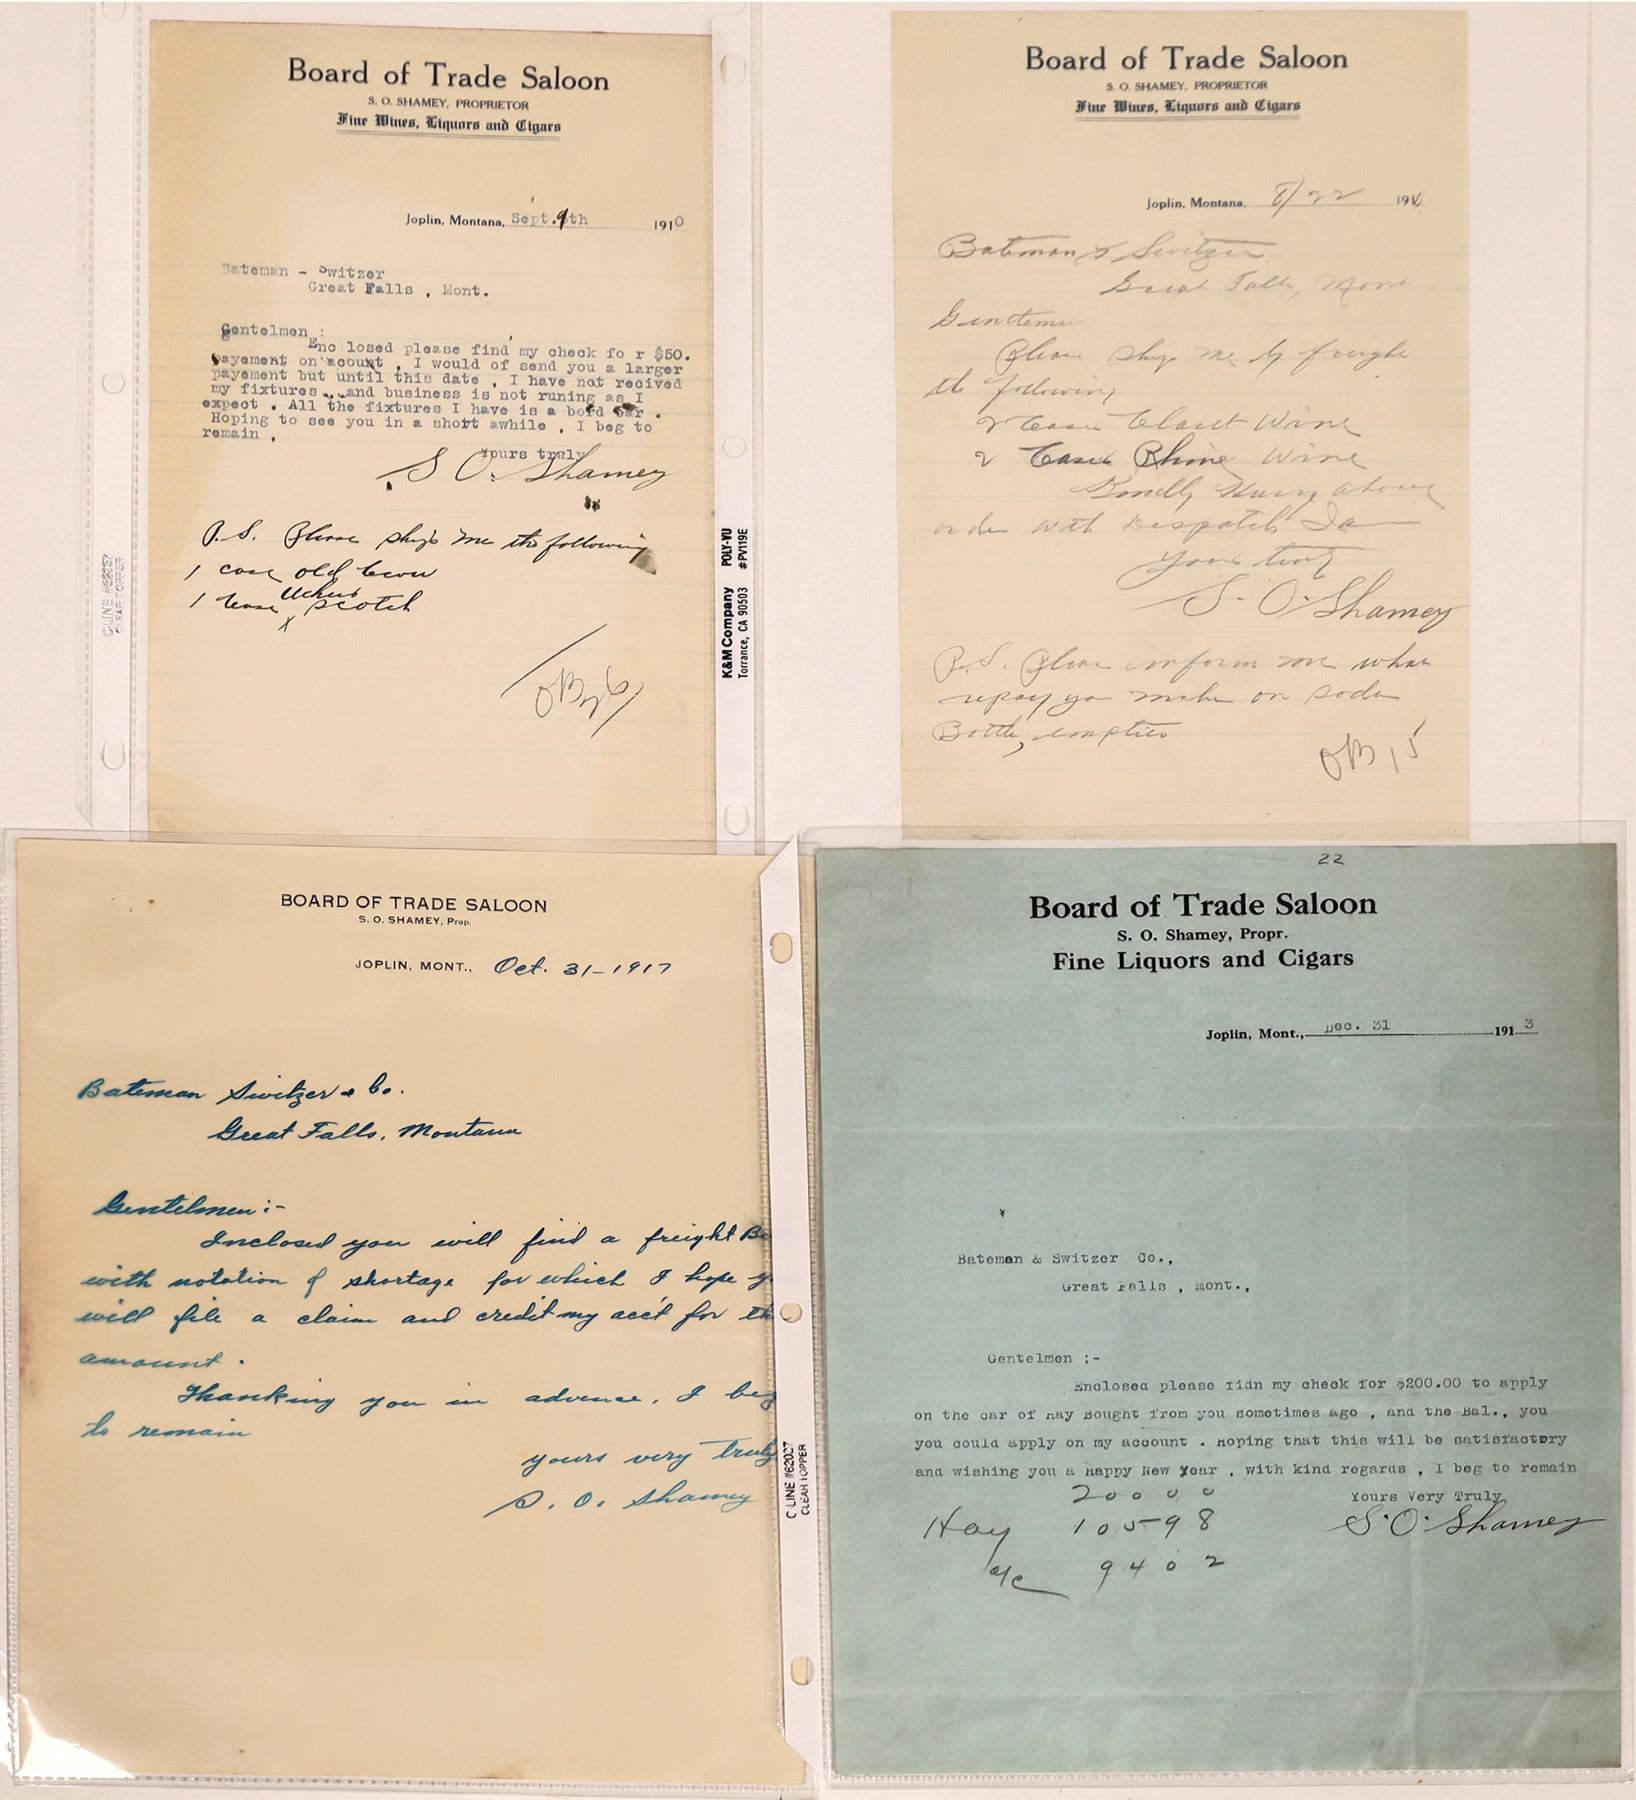 Board of Trade Saloon
S. O. SHAMEY, PROPRIETOR
Fine Wines, Liquors and Cigars
Joplin, Montana, Sept. 9th 1910
Bateman - Switzer
Great Falls , Mont.
Gentelmen :
Enc losed please find my check fo r $50.
payement on acount , I would of send you a larger
payement but until this date , I have not recived
my fixtures , and business is not runing as I
expect . All the fixtures I have is a bord bar .
Hoping to see you in a short awhile , I beg to
remain ,
Yours truly
S. O. Shamey
P.S. Please ship me the following
1 case old Crow
1 case Ushers Scotch
K&M Company POLY-VU
Torrance, CA 90503 #PV119E
C-LINE #62027
CLEAR TOPPER
Board of Trade Saloon
S. O. SHAMEY, PROPRIETOR
Fine Wines, Liquors and Cigars
Joplin, Montana, 8/22 191
Bateman & Switzer
Great Falls, Mont
Gentlemen
Please ship me by freight
the following
2 Cases Claret Wine
2 Cases Rhine Wine
Kindly Hurry above
order with Despatch I am
Yours truly
S. O. Shamey
P.S. Please inform me what
repay you make on soda
Bottle, empties
OB 15
BOARD OF TRADE SALOON
S. O. SHAMEY, Prop.
JOPLIN, MONT., Oct. 31-1917
Bateman Switzer & Co.
Great Falls, Montana
Gentelmen:-
Inclosed you will find a freight B
with notation of shortage for which I hope y
will file a claim and credit my acc't for th
amount.
Thanking you in advence, I beg
to remain
yours very truly
S. O. Shamey
C-LINE #62027
CLEAR TOPPER
22
Board of Trade Saloon
S. O. Shamey, Propr.
Fine Liquors and Cigars
Joplin, Mont., Dec. 31 1913
Bateman & Switzer Co.,
Great Falls , Mont.,
Gentelmen ;-
Enclosed please fidn my check for $200.00 to apply
on the car of Hay Bought from you sometimes ago , and the Bal., you
you could apply on my account . Hoping that this will be satisfactory
and wishing you a Happy New Year , with kind regards , I beg to remain
Yours Very Truly
S. O. Shamey
200 00
Hay 105 98
a/c 94 02